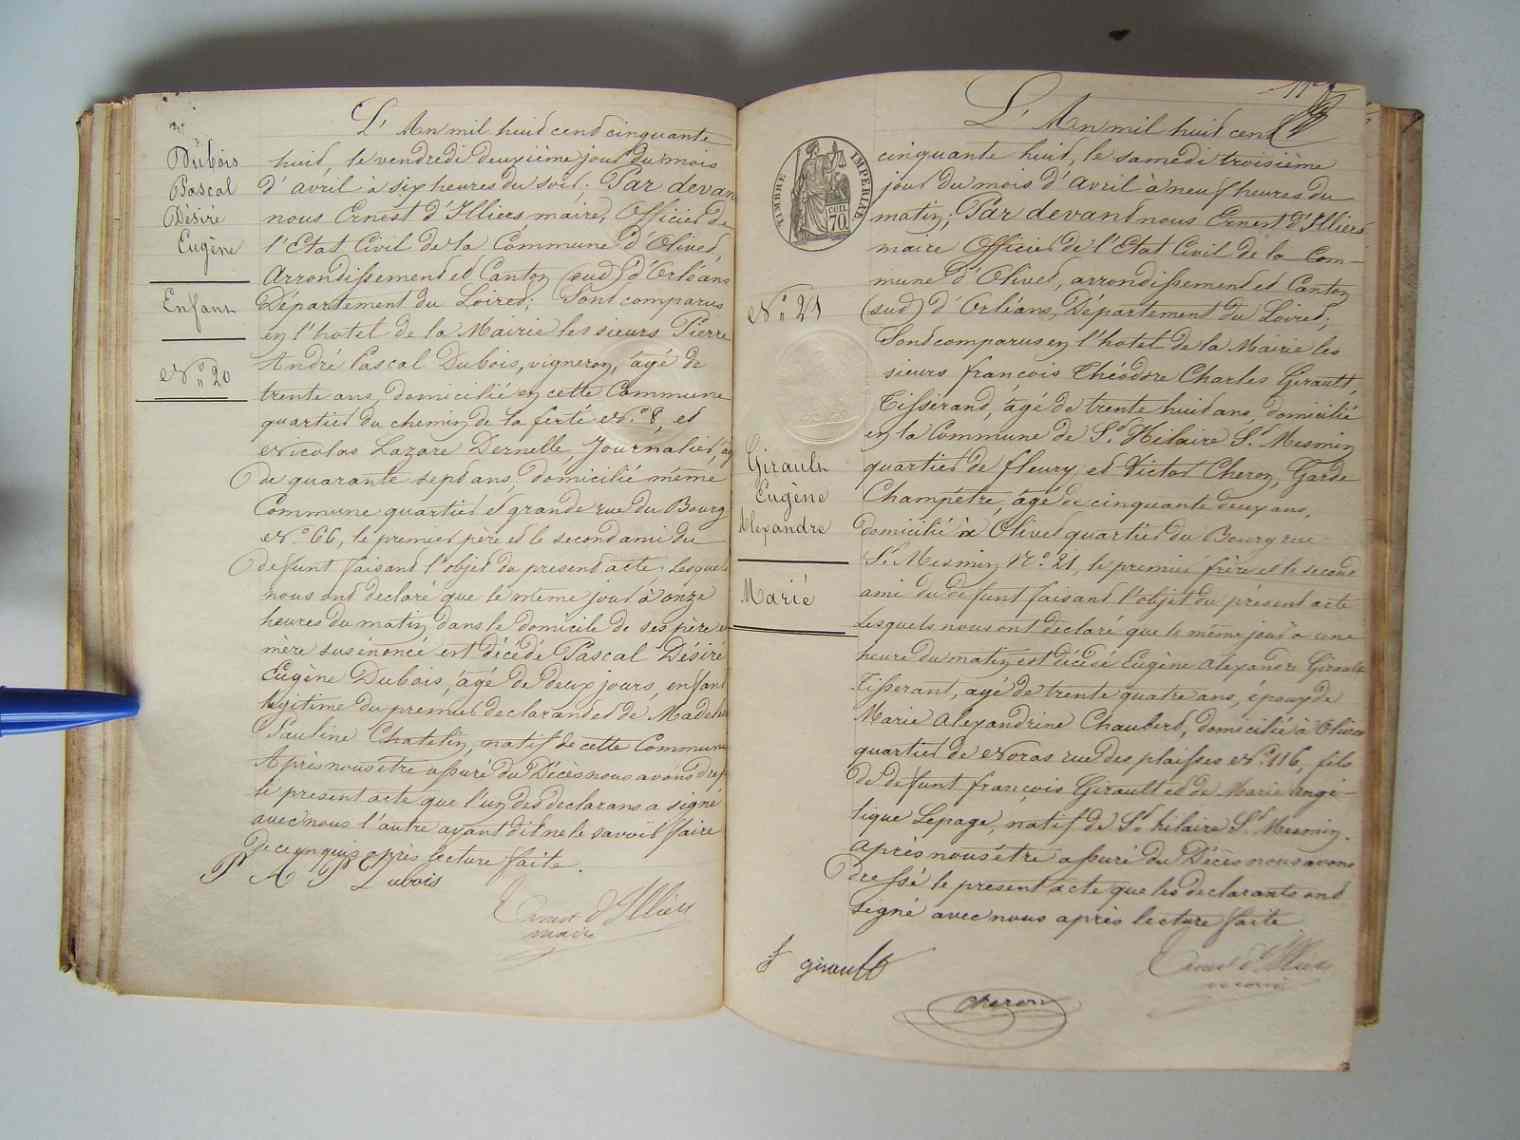 Dubois
Pascal
Désiré
Eugène
Enfant
N.º 20
L'An mil huit cent cinquante
huit, le vendredi deuxième jour du mois
d'avril à six heures du soir; Par devant
nous Ernest d'Illiers maire, Officier de
l'Etat Civil de la Commune d'Olivet
Arrondissement et Canton (sud) d'Orléans
Département du Loiret; Sont comparus
en l'hotel de la Mairie les sieurs Pierre
André Pascal Dubois, vigneron, âgé de
trente ans, domicilié en cette Commune
quartier du chemin de la ferté N.º 8, et
Nicolas Lazare Dernelle Journalier, âgé
de quarante sept ans, domicilié même
Commune quartier et grande rue du Bourg
N.º 66, le premier père et le second ami du
defunt faisant l'objet du present acte. Lesquels
nous ont declaré que le même jour à onze
heures du matin dans le domicile de ses père et
mère susénoncé est décédé Pascal Désiré
Eugène Dubois, âgé de deux jours, enfant
légitime du premier declarant et de Madeleine
Pauline Chatelin, natif de cette Commune
Après nous être assuré du Décès nous avons dressé
le present acte que l'un des declarans a signé
avec nous l'autre ayant dit ne le savoir faire
de ce enquis après lecture faite.
P A P Dubois
Ernest d'Illiers
maire
TIMBRE IMPERIAL
70
N.º 21
Girault
Eugène
Alexandre
Marié
L'An mil huit cent
cinquante huit, le samedi troisième
jour du mois d'avril à neuf heures du
matin; Par devant nous Ernest d'Illiers
maire Officier de l'Etat Civil de la Com-
mune d'Olivet, arrondissement et Canton
(sud) d'Orléans, Département du Loiret;
Sont comparus en l'hotel de la Mairie les
sieurs françois Théodore Charles Girault,
Tisserand, âgé de trente huit ans, domicilié
en la Commune de St. Hilaire St. Mesmin
quartier de fleury et Victor Cheron, Garde
Champêtre, âgé de cinquante deux ans,
domicilié à Olivet quartier du Bourg rue
St. Mesmin N.º 21, le premier frère et le second
ami du defunt faisant l'objet du présent acte
Lesquels nous ont declaré que le même jour à une
heure du matin est décédé Eugène Alexandre Girault
Tisserant, agé de trente quatre ans, époux de
Marie Alexandrine Chaubert, domicilié à Olivet
quartier de Noras rue des plaisses N.º 116, fils
de defunt françois Girault et de Marie Angé-
lique Lepage, natif de St. hilaire St. Mesmin.
Après nous être assuré du Décès nous avons
dressé le present acte que les declarants ont
signé avec nous après lecture faite
f girault
Cheron
Ernest d'Illiers
maire